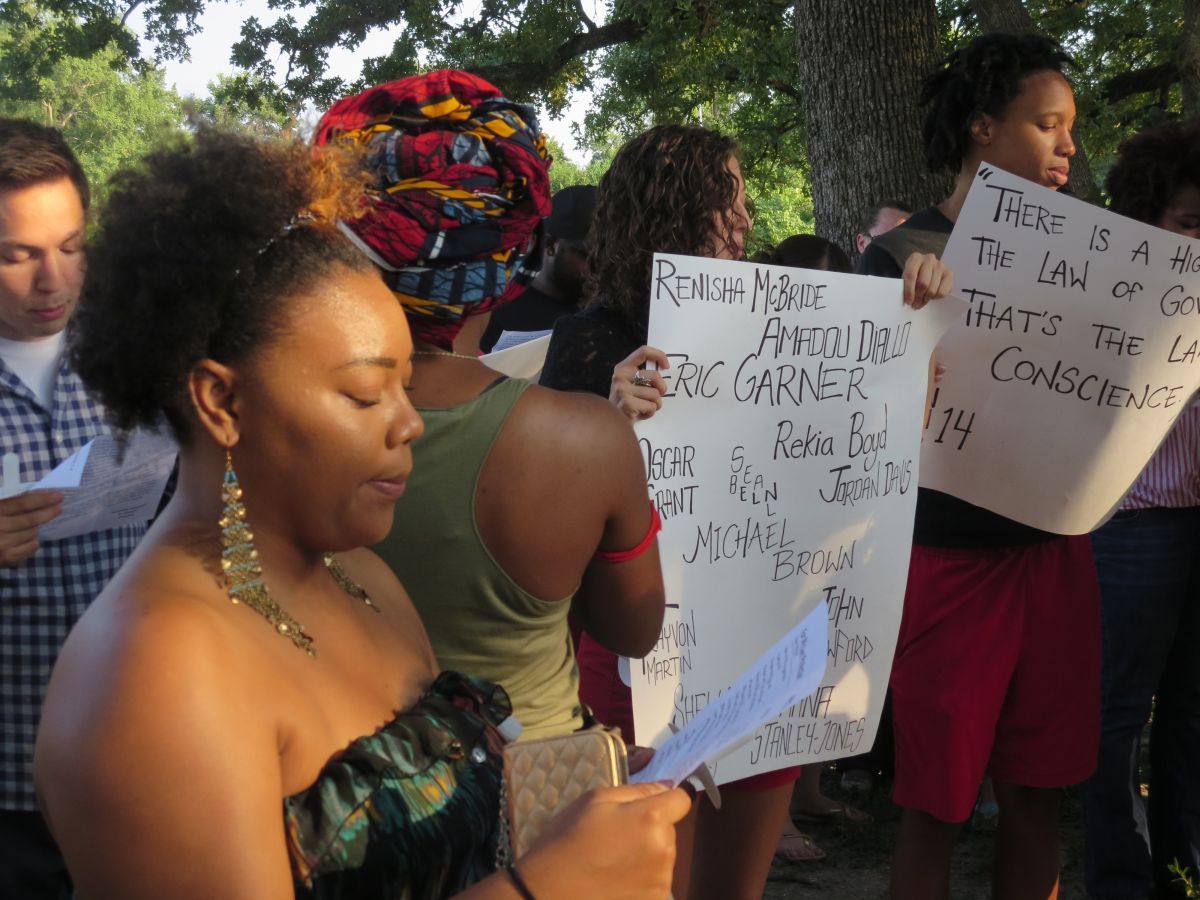 RENISHA MCBRIDE
AMADOU DIALLO
ERIC GARNER
Rekia Boyd
OSCAR
GRANT
SEAN
BELL
JORDAN DAVIS
MICHAEL
BROWN
JOHN
WFORD
TRAYVON
MARTIN
SHEL
STANLEY-JONES
"THERE IS A HIG
THE LAW OF GO
THAT'S THE LA
CONSCIENCE
!'14